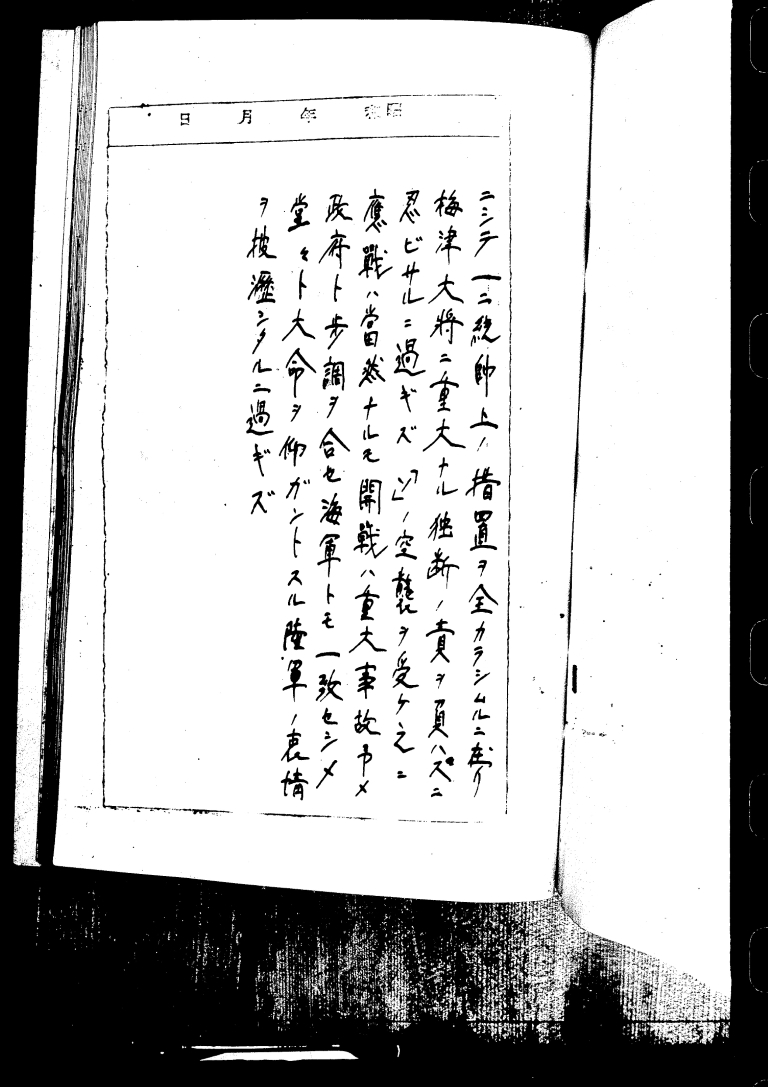 昭和 年 月 日
ニシテ一ニ統帥上ノ措置ヲ全カラシムルニ在リ
梅津大将ニ重大ナル独断ノ責ヲ負ハスニ
忍ビサルニ過ギズ 「ソ」ノ空襲ヲ受ケ之ニ
應戰ハ當然ナルモ開戰ハ重大事故予メ
政府ト歩調ヲ合セ海軍トモ一致セシメ
堂々ト大命ヲ仰ガントスル陸軍ノ衷情
ヲ披瀝シタルニ過ギズ